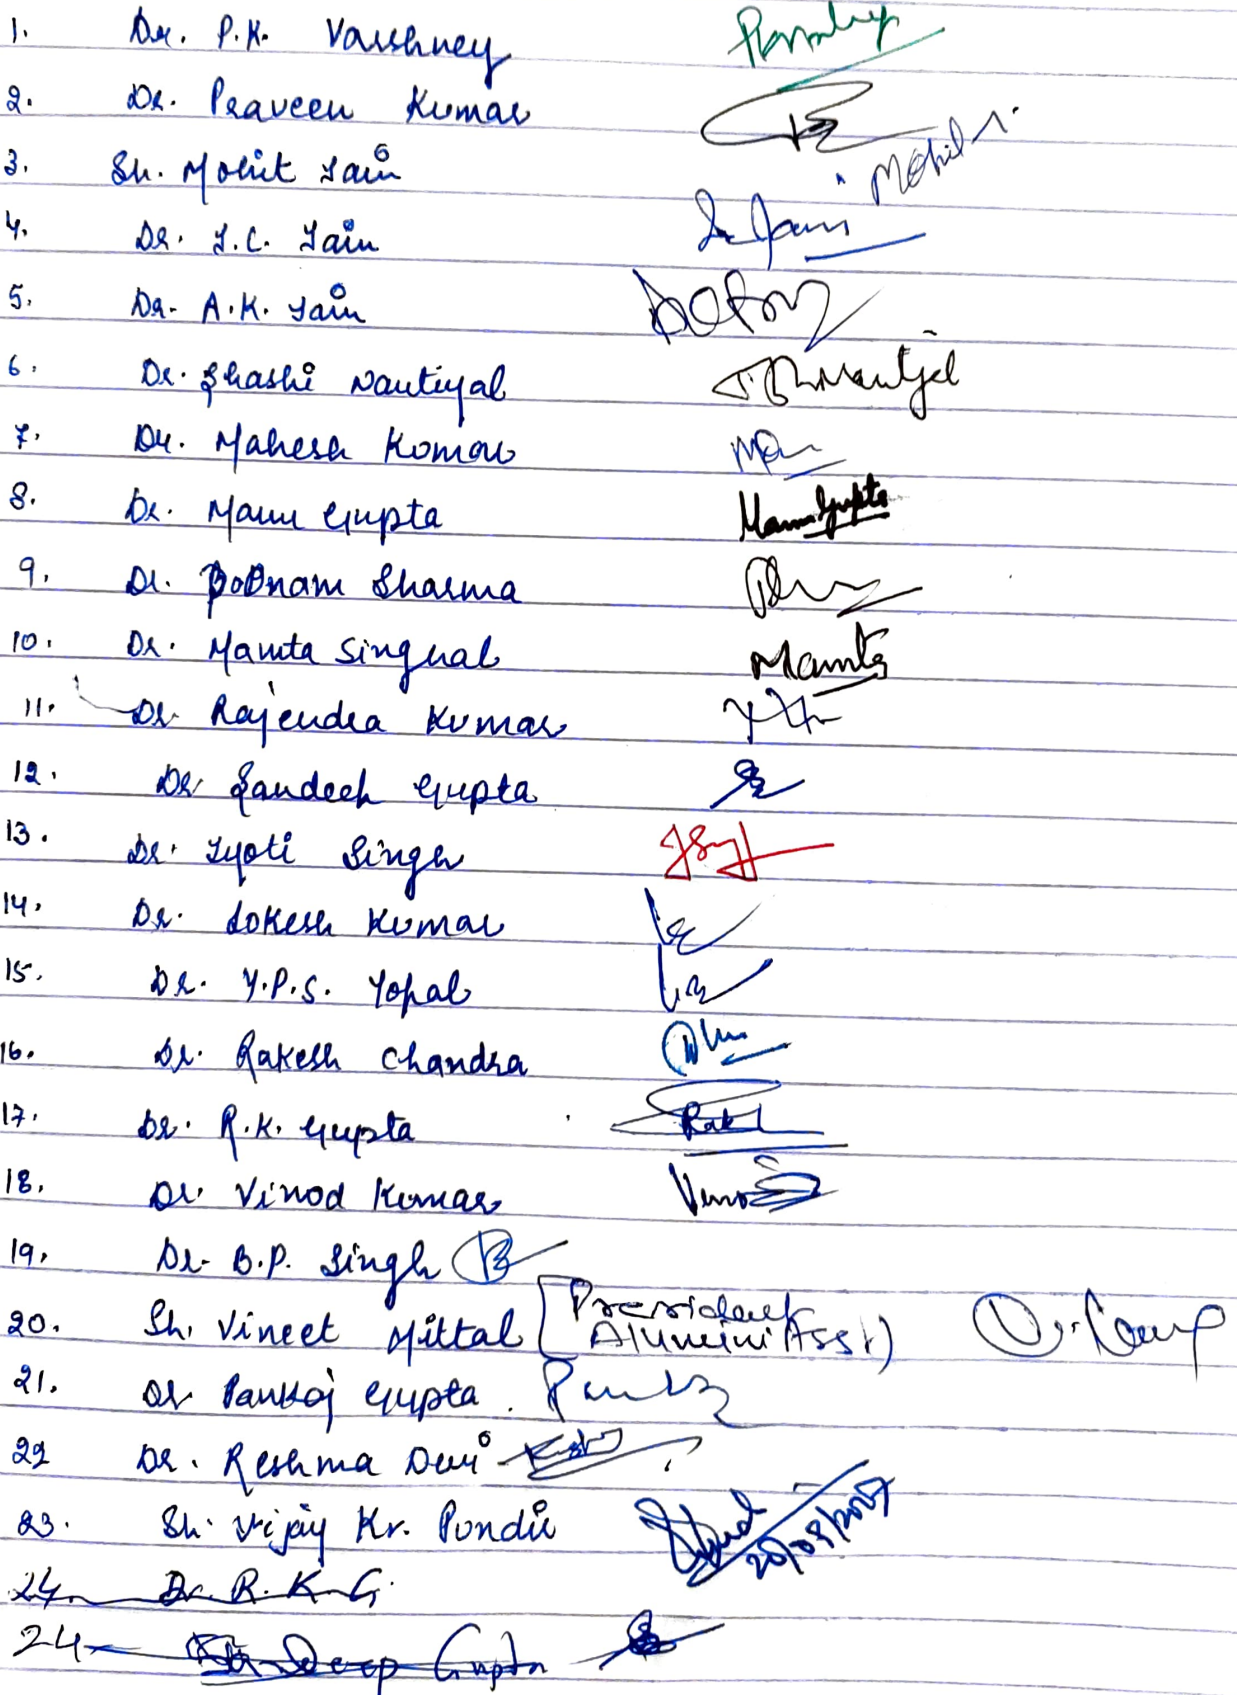 1. Dr. P.K. Varshney
2. Dr. Praveen Kumar
3. Sh. Mohit Jain Mohit
4. Dr. J.C. Jain Jain
5. Dr. A.K. Jain
6. Dr. Shashi Nautiyal Nautiyal
7. Dr. Mahesh Kumar
8. Dr. Manu Gupta Manu Gupta
9. Dr. Poonam Sharma
10. Dr. Mamta Singhal Mamta
11. Dr. Rajendra Kumar
12. Dr. Sandeep Gupta
13. Dr. Jyoti Singh
14. Dr. Lokesh Kumar
15. Dr. Y.P.S. Topal
16. Dr. Rakesh Chandra
17. Dr. R.K. Gupta
18. Dr. Vinod Kumar
19. Dr. B.P. Singh
20. Sh. Vineet Mittal [President
Alumini Asst)
21. Dr Pankaj Gupta.
22 Dr. Reshma Devi
23. Sh. Vijay Kr. Pundir
24. Dr. R. K. G.
24 Sandeep Gupta